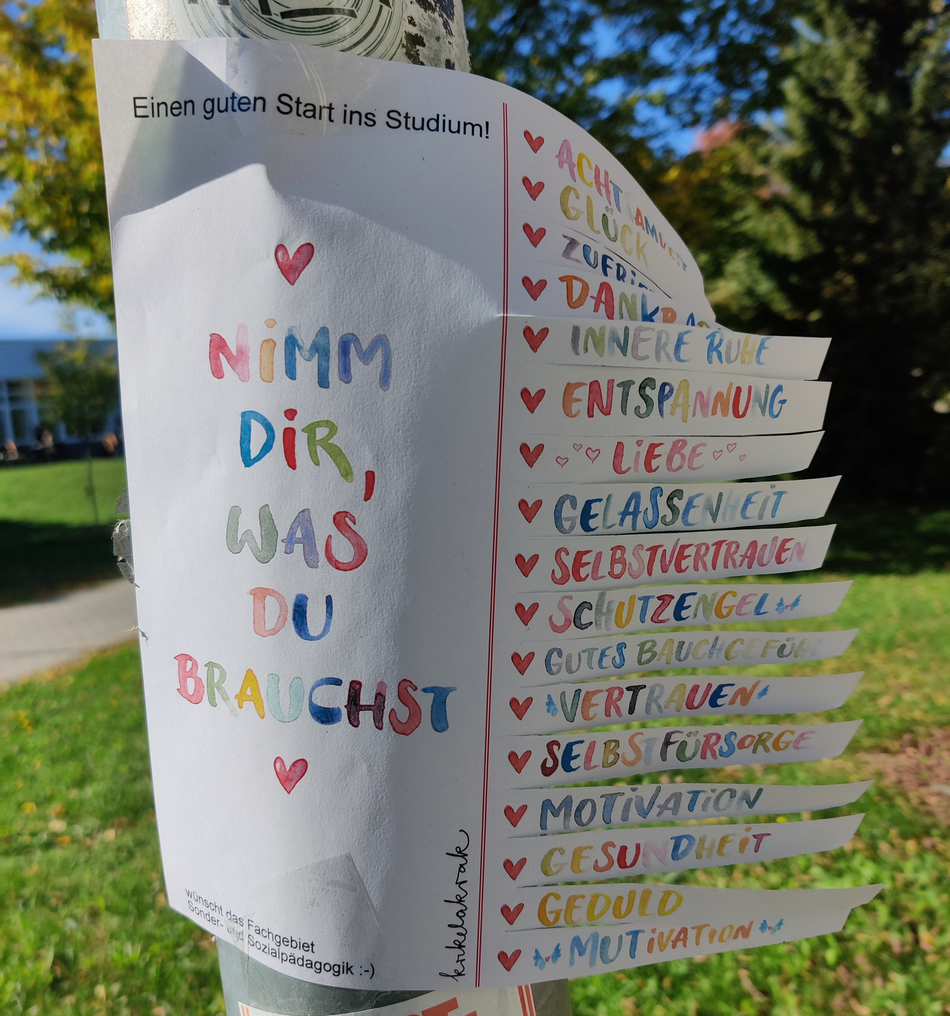 Einen guten Start ins Studium!
NiMM
DiR,
WAS
DU
BRAUCHST
wünscht das Fachgebiet
Sonder- und Sozialpädagogik :-)
krikelakrak
ACHTSAMKEIT
GLÜCK
DANKBAR
INNERE RUHE
ENTSPANNUNG
LiEBE
GELASSENHEiT
SELBSTVERTRAUEN
SCHUTZENGEL
GUTES BAUCHGEFÜHL
VERTRAUEN
SELBSTFÜRSORGE
MOTiVATiON
GESUNDHEiT
GEDULD
MUTiVATiON